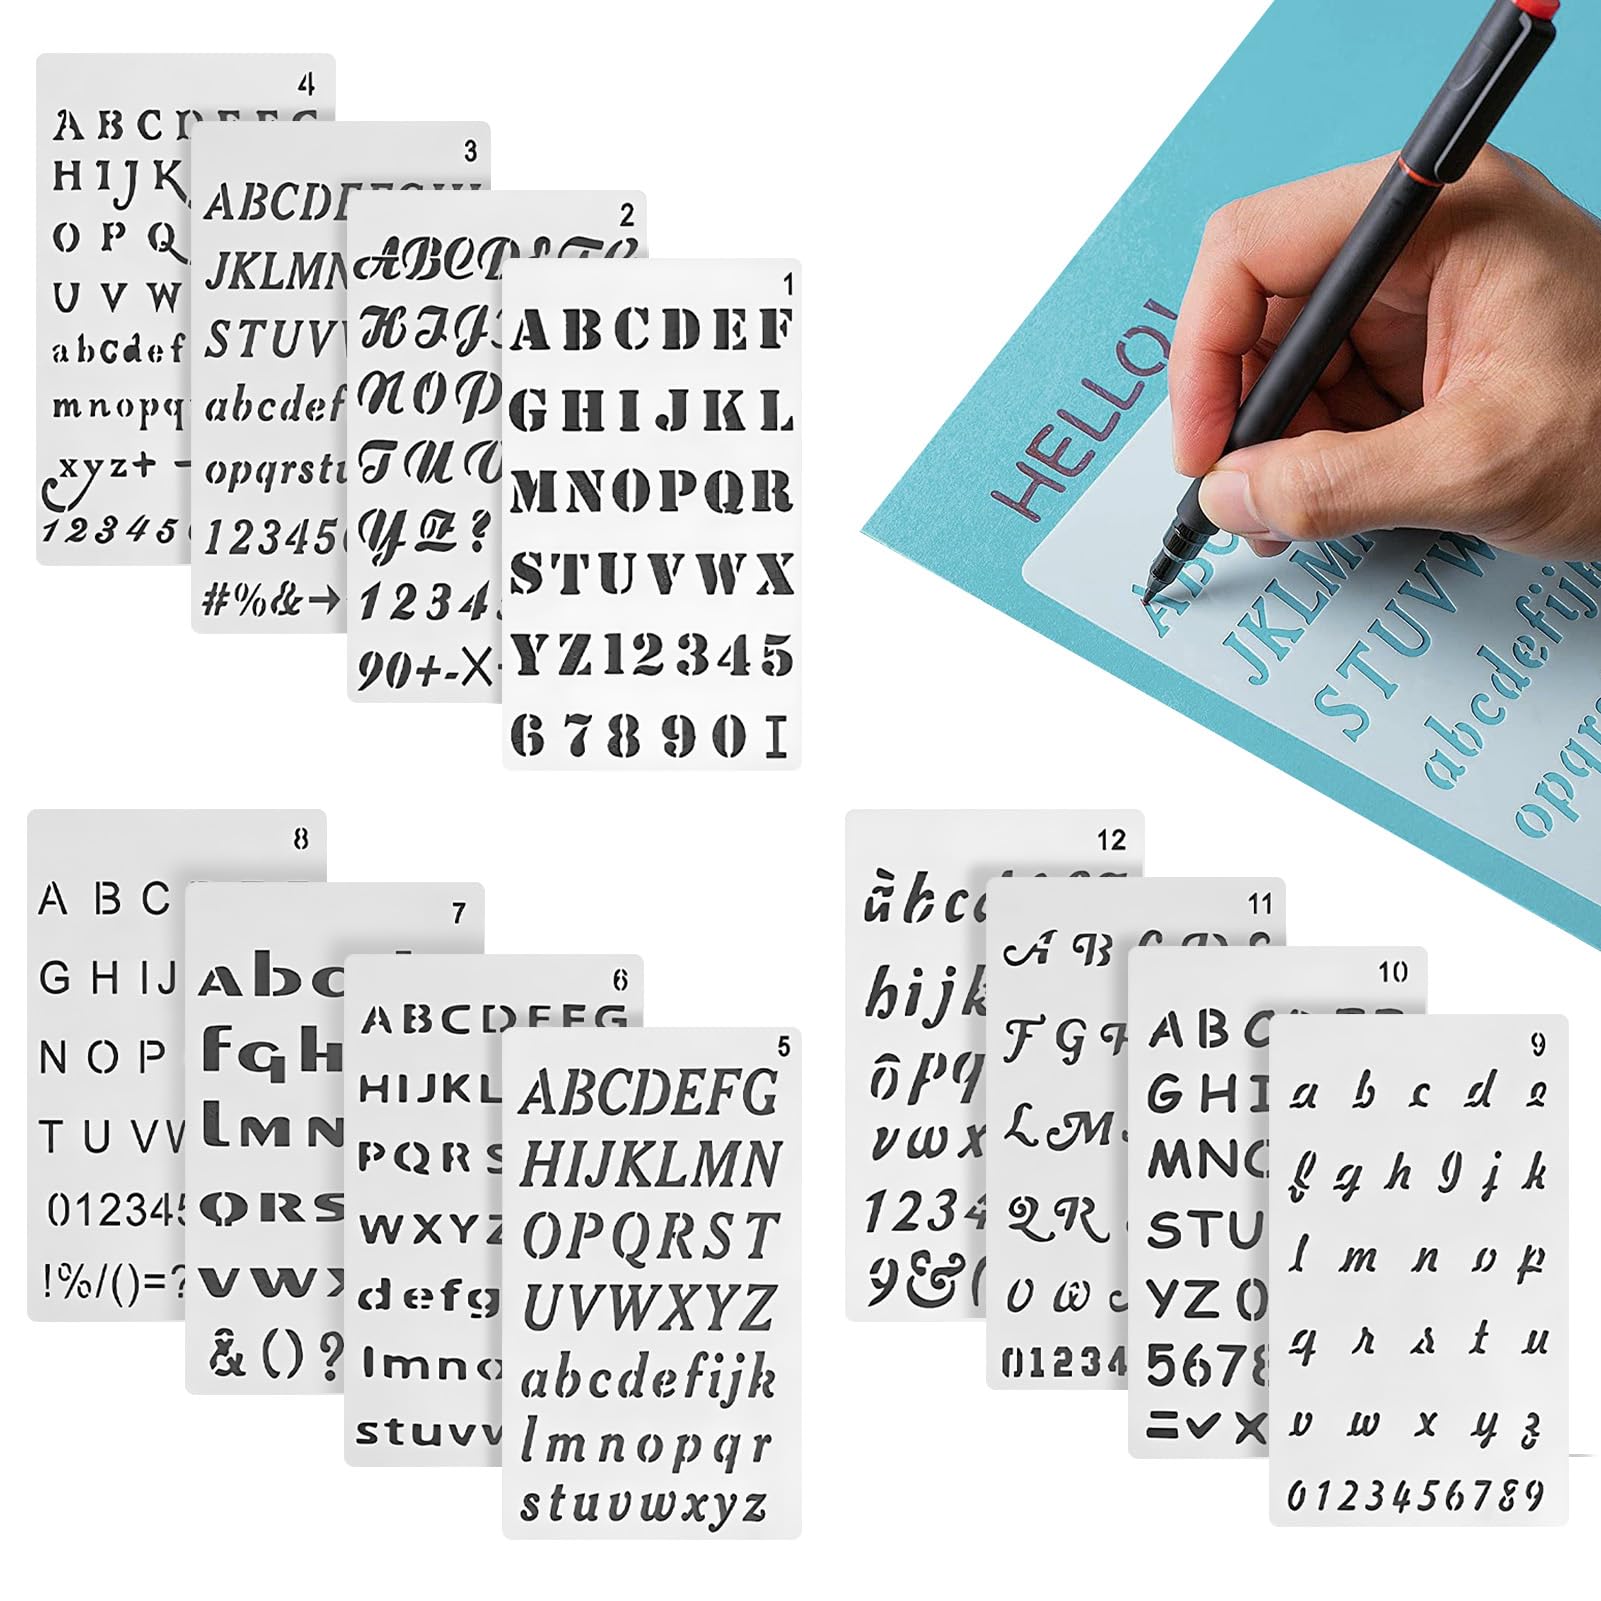 4
A B C D E F G
H I J K
O P Q
U V W
a b c d e f
m n o p q
x y z + -
1 2 3 4 5
3
ABCDEFGHI
JKLMN
STUV
abcdef
opqrst
12345
#%&→
2
ABCDEFG
HIJ
NOP
TUV
YZ?
1234
90+-×
1
ABCDEF
GHIJKL
MNOPQR
STUVWX
YZ12345
67890I
HELLO!
ABC
JKLM
STUVW
abcdefijk
opqr
8
A B C
G H I J
N O P
T U V
012345
!%/()=?
7
abc
fgh
lmn
qrs
vwx
&()?
6
ABCDEFG
HIJKL
PQRS
WXYZ
defg
lmno
stuv
5
ABCDEFG
HIJKLMN
OPQRST
UVWXYZ
abcdefijk
lmnopqr
stuvwxyz
12
äbcd
hijk
öpq
vwx
1234
9&(
11
A B C D E
F G H
L M
Q R
U W
01234
10
ABC
GHI
MNO
STU
YZ0
5678
=✓×
9
a b c d e
f g h I j k
l m n o p
q r s t u
v w x y z
0123456789